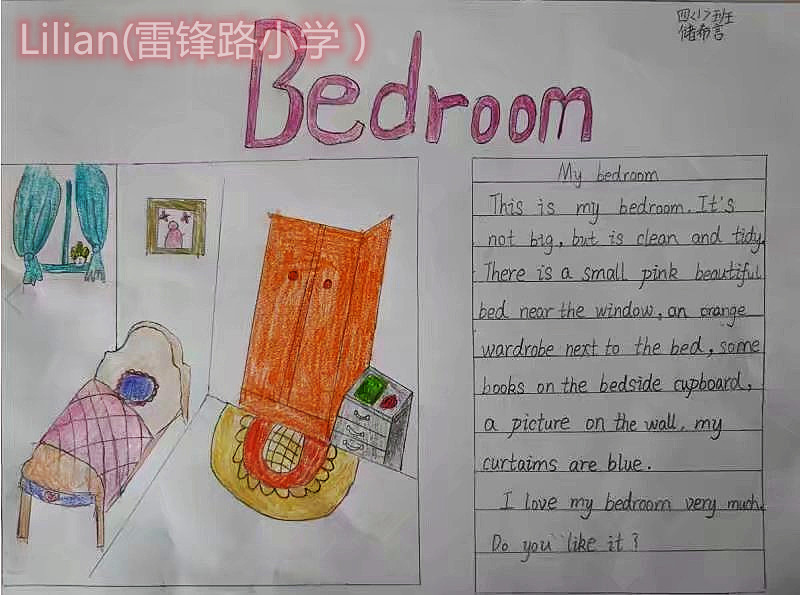 Lilian(雷锋路小学)
四<1>班
储希言
Bedroom
My bedroom
This is my bedroom. It's
not big, but is clean and tidy.
There is a small pink beautiful
bed near the window, an orange
wardrobe next to the bed, some
books on the bedside cupboard,
a picture on the wall, my
curtaims are blue.
I love my bedroom very much.
Do you like it?